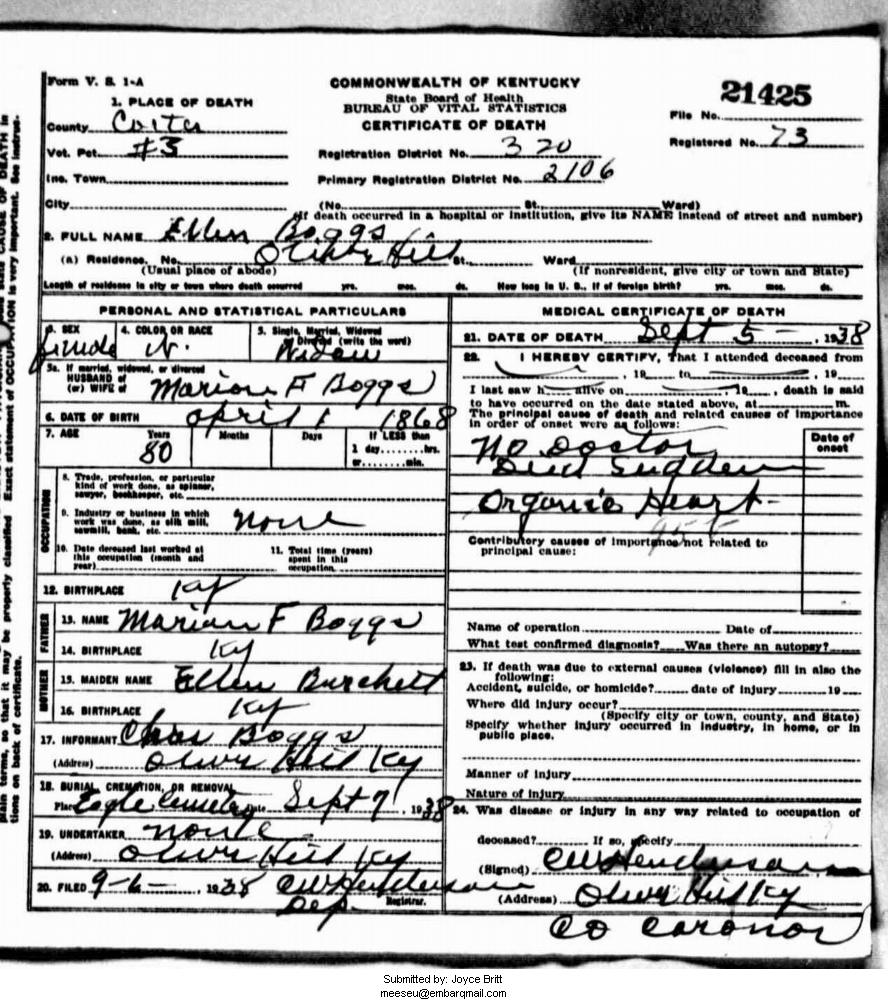 Form V. S. 1-A
COMMONWEALTH OF KENTUCKY
State Board of Health
BUREAU OF VITAL STATISTICS
CERTIFICATE OF DEATH
21425
File No.
Registered No. 73
1. PLACE OF DEATH
County Carter
Vot. Pct. #3
Inc. Town
City
Registration District No. 320
Primary Registration District No. 2106
(No. St., Ward)
(If death occurred in a hospital or institution, give its NAME instead of street and number)
2. FULL NAME Ellen Boggs
(a) Residence. No. Olive Hill St., Ward
(Usual place of abode) (If nonresident, give city or town and State)
Length of residence in city or town where death occurred yrs. mos. ds. How long in U. S., if of foreign birth? yrs. mos. ds.
PERSONAL AND STATISTICAL PARTICULARS
3. SEX female
4. COLOR OR RACE W.
5. Single, Married, Widowed
Divorced (write the word)
Widow
5a. If married, widowed, or divorced
HUSBAND of
(or) WIFE of Marion F Boggs
6. DATE OF BIRTH april 1 1868
7. AGE Years Months Days If LESS than
80 1 day........hrs.
or........min.
OCCUPATION
8. Trade, profession, or particular
kind of work done, as spinner,
sawyer, bookkeeper, etc.
9. Industry or business in which
work was done, as silk mill,
sawmill, bank, etc. none
10. Date deceased last worked at
this occupation (month and
year)
11. Total time (years)
spent in this
occupation
12. BIRTHPLACE Ky
FATHER
13. NAME Marion F Boggs
14. BIRTHPLACE Ky
MOTHER
15. MAIDEN NAME Ellen Burchett
16. BIRTHPLACE Ky
17. INFORMANT Chas Boggs
(Address) Olive Hill Ky
18. BURIAL, CREMATION, OR REMOVAL
Place Eagle Cemetery Date Sept 7, 1938
19. UNDERTAKER none
(Address) Olive Hill Ky
20. FILED 9-6-, 1938 CW Henderson
Dep. Registrar.
MEDICAL CERTIFICATE OF DEATH
21. DATE OF DEATH Sept 5 - , 1938
22. I HEREBY CERTIFY, That I attended deceased from
, 19 to , 19
I last saw h alive on , 19 , death is said
to have occurred on the date stated above, at m.
The principal cause of death and related causes of importance
in order of onset were as follows:
Date of
onset
No Doctor
Died Sudden
Organic Heart
Contributory causes of importance not related to
principal cause:
Name of operation Date of
What test confirmed diagnosis? Was there an autopsy?
23. If death was due to external causes (violence) fill in also the
following:
Accident, suicide, or homicide? date of injury 19
Where did injury occur?
(Specify city or town, county, and State)
Specify whether injury occurred in industry, in home, or in
public place.
Manner of injury
Nature of injury
24. Was disease or injury in any way related to occupation of
deceased? If so, specify
(Signed) CW Henderson
(Address) Olive Hill Ky
CO CORONOR
plain terms, so that it may be properly classified. Exact statement of OCCUPATION is very important. See instruc-
tions on back of certificate.
Submitted by: Joyce Britt
meeseu@embarqmail.com